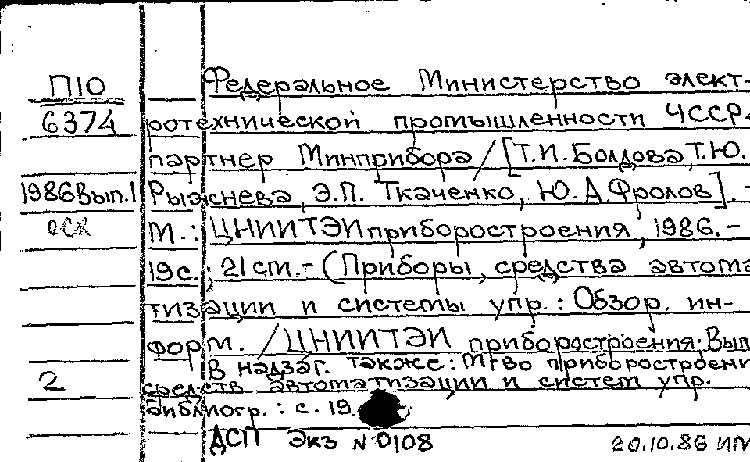 П10
6374
1986 Вып.1
2
Федеральное Министерство элект-
ротехнической промышленности ЧССР-
партнер Минприбора / [Т.И. Болдова, Т.Ю.
Рыжнева, Э.П. Ткаченко, Ю.А. Фролов]. -
М.: ЦНИИТЭИ приборостроения, 1986.-
19 с.; 21 см.- (Приборы, средства автома
тизации и системы упр.: Обзор. ин-
форм. / ЦНИИТЭИ приборостроения; Вып
В надзаг. также: М-во приборостроени
средств автоматизации и систем упр.
Библиогр.: с. 19.
ДСП Экз N 0108
20.10.86 ИМ